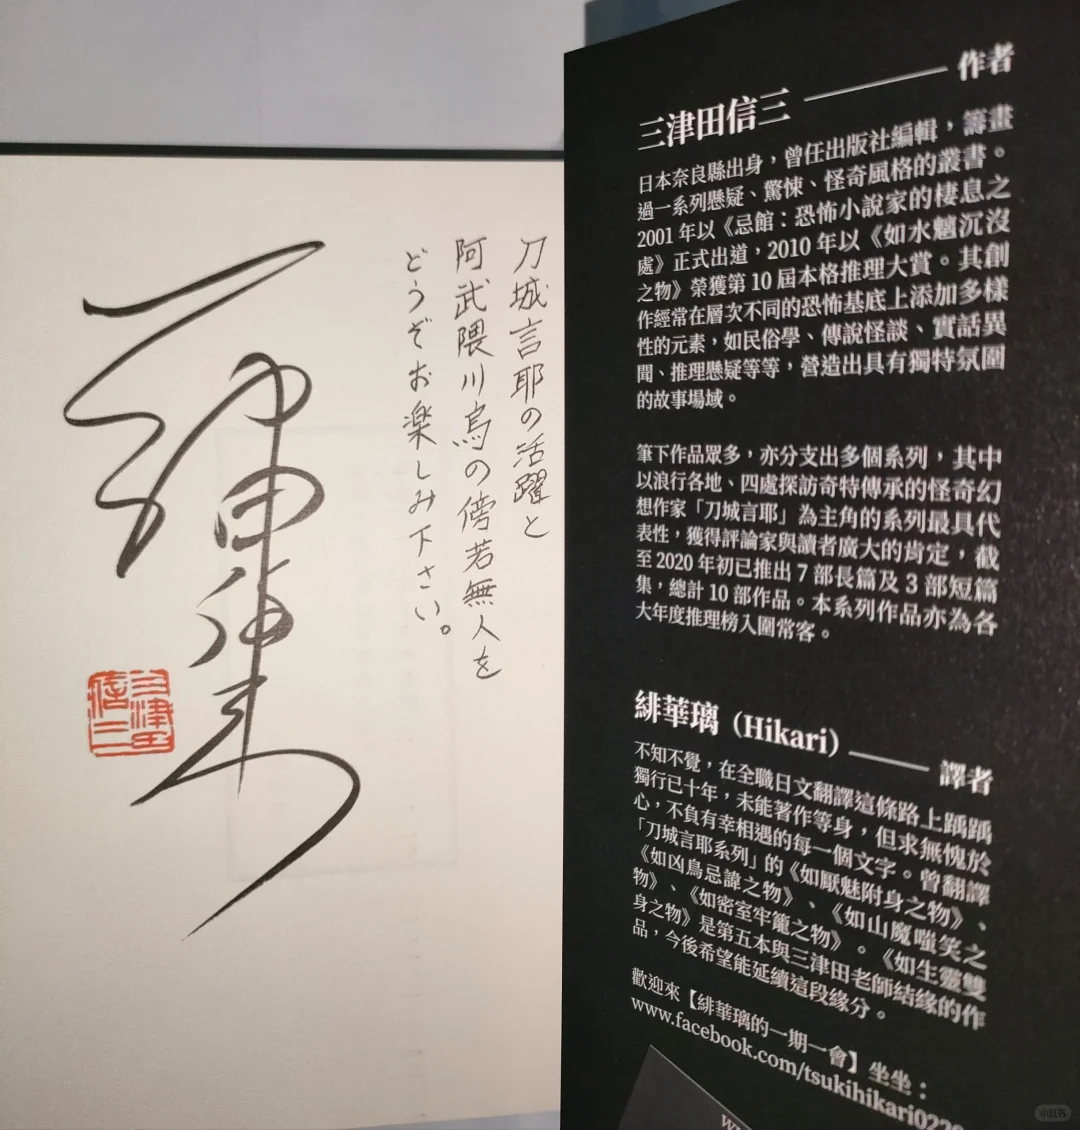 刀城言耶の活躍と
阿武隈川烏の傍若無人を
どうぞお楽しみ下さい。
三津田
信三
三津田信三 —— 作者
日本奈良縣出身，曾任出版社編輯，籌畫
過一系列懸疑、驚悚、怪奇風格的叢書。
2001 年以《忌館：恐怖小說家的棲息之
處》正式出道，2010 年以《如水魑沉沒
之物》榮獲第 10 屆本格推理大賞。其創
作經常在層次不同的恐怖基底上添加多樣
性的元素，如民俗學、傳說怪談、實話異
聞、推理懸疑等等，營造出具有獨特氛圍
的故事場域。
筆下作品眾多，亦分支出多個系列，其中
以浪行各地、四處探訪奇特傳承的怪奇幻
想作家「刀城言耶」為主角的系列最具代
表性，獲得評論家與讀者廣大的肯定，截
至 2020 年初已推出 7 部長篇及 3 部短篇
集，總計 10 部作品。本系列作品亦為各
大年度推理榜入圍常客。
緋華璃（Hikari）—— 譯者
不知不覺，在全職日文翻譯這條路上踽踽
獨行已十年，未能著作等身，但求無愧於
心，不負有幸相遇的每一個文字。曾翻譯
「刀城言耶系列」的《如厭魅附身之物》、
《如凶鳥忌諱之物》、《如山魔嗤笑之
物》、《如密室牢籠之物》。《如生靈雙
身之物》是第五本與三津田老師結緣的作
品，今後希望能延續這段緣分。
歡迎來【緋華璃的一期一會】坐坐：
www.facebook.com/tsukihikari0220
小红书